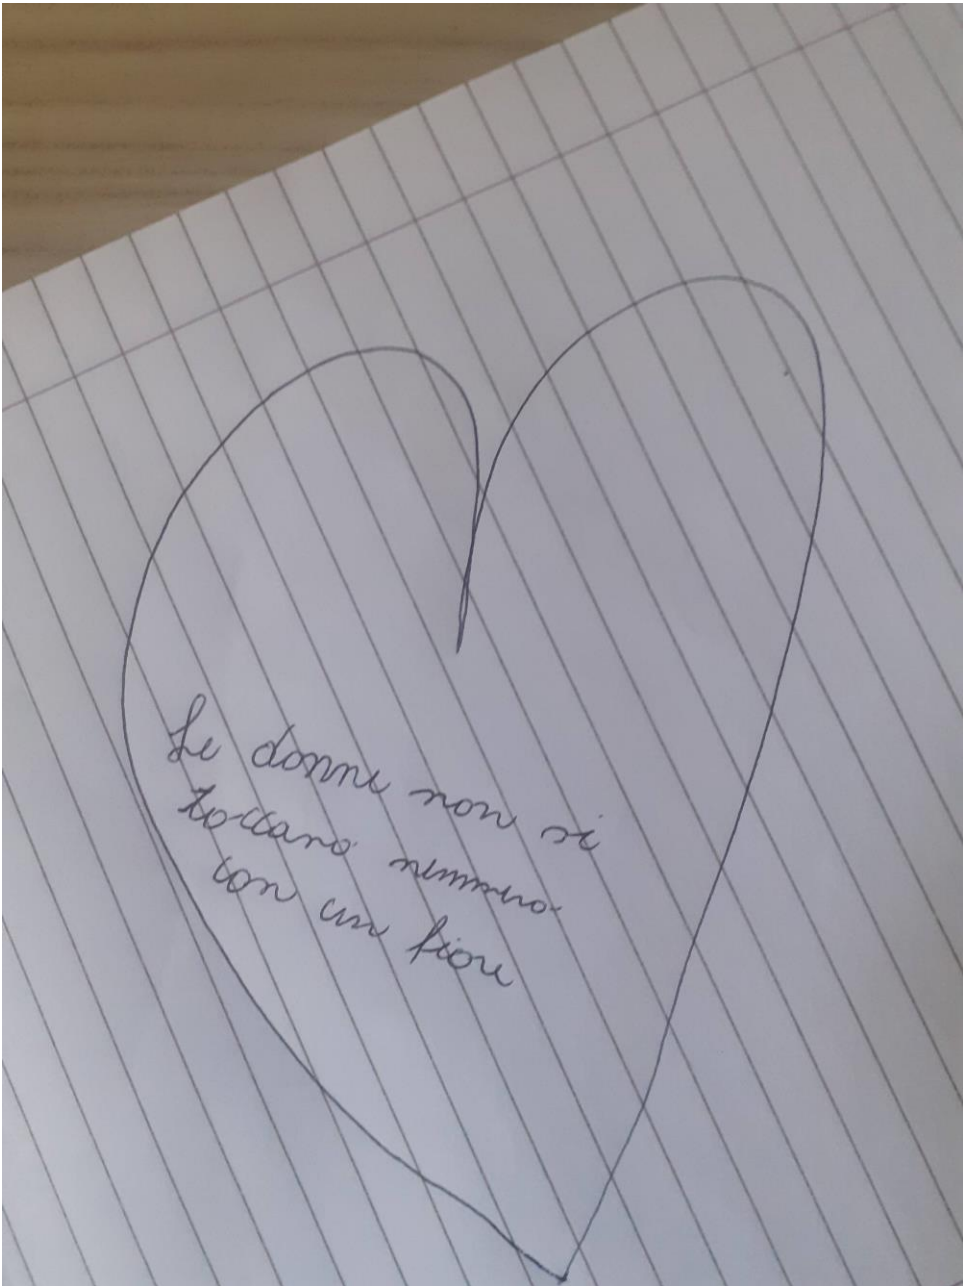 Le donne non si
toccano nemmeno
con un fiore